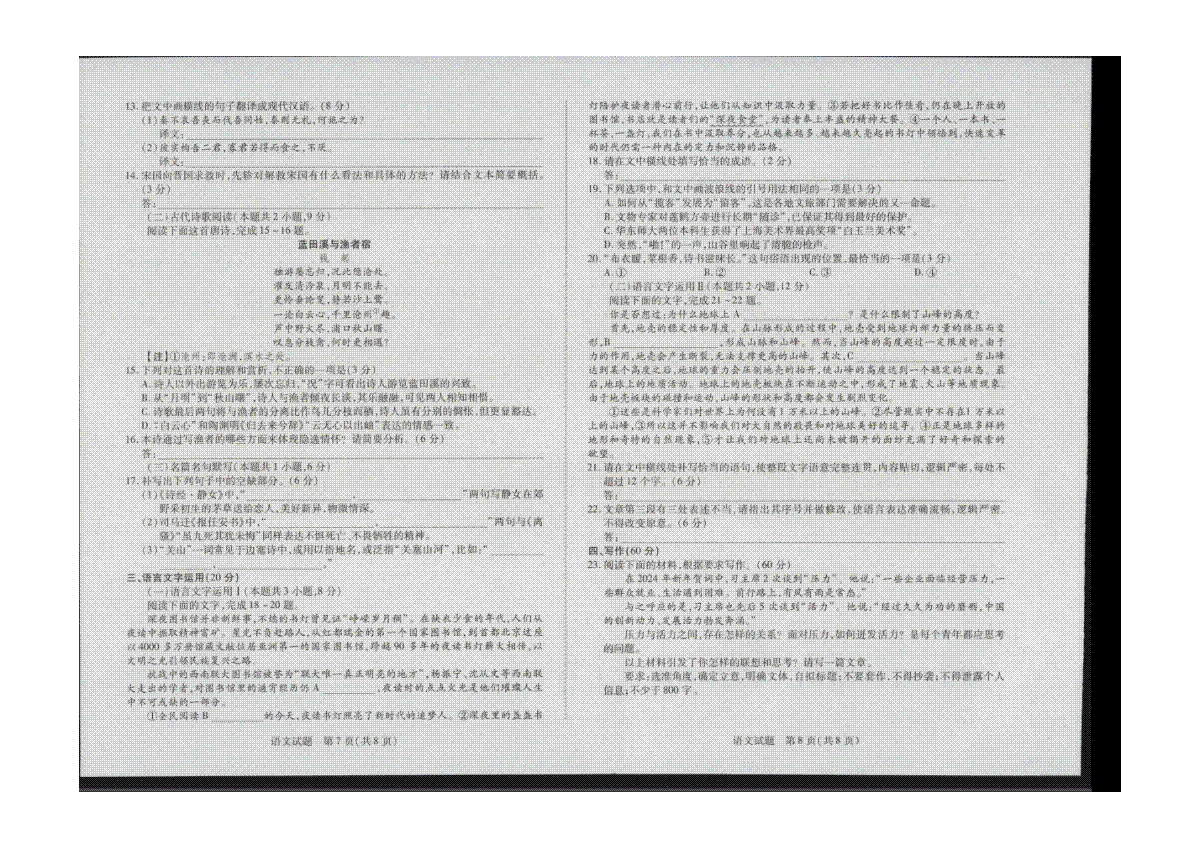 13. 把文中画横线的句子翻译成现代汉语。(8 分)
(1)秦不哀吾丧而伐吾同姓,秦则无礼,何施之为?
译文:
(2)彼实构吾二君,寡君若得而食之,不厌。
译文:
14. 宋国向晋国求救时,先轸对解救宋国有什么看法和具体的方法? 请结合文本简要概括。
(3 分)
答:
(二)古代诗歌阅读(本题共 2 小题,9 分)
阅读下面这首唐诗,完成 15~16 题。
蓝田溪与渔者宿
钱 起
独游屡忘归,况此隐沦处。
濯发清泠泉,月明不能去。
更怜垂纶叟,静若沙上鹭。
一论白云心,千里沧州①趣。
芦中野火尽,浦口秋山曙。
叹息分枝禽,何时更相遇?
【注】①沧州:即沧洲,滨水之处。
15. 下列对这首诗的理解和赏析,不正确的一项是(3 分)
A. 诗人以外出游览为乐,屡次忘归,“况”字可看出诗人游览蓝田溪的兴致。
B. 从“月明”到“秋山曙”,诗人与渔者倾夜长谈,其乐融融,可见两人相知相惜。
C. 诗歌最后两句将与渔者的分离比作鸟儿分枝而栖,诗人虽有分别的惆怅,但更显豁达。
D. “白云心”和陶渊明《归去来兮辞》“云无心以出岫”表达的情感一致。
16. 本诗通过写渔者的哪些方面来体现隐逸情怀? 请简要分析。(6 分)
答:
(三)名篇名句默写(本题共 1 小题,6 分)
17. 补写出下列句子中的空缺部分。(6 分)
(1)《诗经·静女》中,“ , ”两句写静女在郊
野采初生的茅草送给恋人,美好新异,物微情深。
(2)司马迁《报任安书》中,“ , ”两句与《离
骚》“虽九死其犹未悔”同样表达不惧死亡、不畏牺牲的精神。
(3)“关山”一词常见于边塞诗中,或用以指地名,或泛指“关塞山河”,比如:“
, 。”
三、语言文字运用(20 分)
(一)语言文字运用 I (本题共 3 小题,8 分)
阅读下面的文字,完成 18~20 题。
深夜图书馆并非新鲜事,不熄的书灯曾见证“峥嵘岁月稠”。在缺衣少食的年代,人们从
夜读中摄取精神富矿。星光不负赶路人,从红都瑞金的第一个国家图书馆,到首都北京这座
以 4000 多万册馆藏文献位居亚洲第一的国家图书馆,跨越 90 多年的夜读书灯薪火相传,以
文明之光引领民族复兴之路。
抗战中的西南联大图书馆被誉为“联大唯一真正明亮的地方”,杨振宁、沈从文等西南联
大走出的学者,对图书馆里的通宵经历仍 A ,夜读时的点点火光是他们璀璨人生
中不可或缺的一部分。
①全民阅读 B 的今天,夜读书灯照亮了新时代的追梦人。②深夜里的盏盏书
语文试题 第 7 页(共 8 页)
灯陪护夜读者潜心前行,让他们从知识中汲取力量。③若把好书比作佳肴,仍在晚上开放的
图书馆、书店就是读者们的“深夜食堂”,为读者奉上丰盛的精神大餐。④一个人、一本书、一
杯茶、一盏灯,我们在书中汲取养分,也从越来越多、越来越久亮起的书灯中领悟到,快速变革
的时代仍需一种内在的定力和沉静的品格。
18. 请在文中横线处填写恰当的成语。(2 分)
答:
19. 下列选项中,和文中画波浪线的引号用法相同的一项是(3 分)
A. 如何从“揽客”发展为“留客”,这是各地文旅部门需要解决的又一命题。
B. 文物专家对莲鹤方壶进行长期“随诊”,已保证其得到最好的保护。
C. 华东师大两位本科生获得了上海美术界最高奖项“白玉兰美术奖”。
D. 突然,“啪!”的一声,山谷里响起了清脆的枪声。
20. “布衣暖,菜根香,诗书滋味长。”这句俗语出现的位置,最恰当的一项是(3 分)
A. ① B. ② C. ③ D. ④
(二)语言文字运用 II (本题共 2 小题,12 分)
阅读下面的文字,完成 21~22 题。
你是否想过:为什么地球上 A ? 是什么限制了山峰的高度?
首先,地壳的稳定性和厚度。在山脉形成的过程中,地壳受到地球内部力量的挤压而变
形,B ,形成山脉和山峰。然而,当山峰的高度超过一定限度时,由于
力的作用,地壳会产生断裂,无法支撑更高的山峰。其次,C 。当山峰
达到某个高度之后,地球的重力会压制地壳的抬升,使山峰的高度达到一个稳定的状态。最
后,地球上的地质活动。地球上的地壳板块在不断运动之中,形成了地震、火山等地质现象。
由于地壳板块的碰撞和运动,山峰的形状和高度都会发生剧烈变化。
①这些是科学家们对世界上为何没有 1 万米以上的山峰。②尽管现实中不存在 1 万米以
上的山峰,③所以这并不影响我们对大自然的敬畏和对地球美好的追寻。④正是地球多样的
地形和奇特的自然现象,⑤才让我们对地球上还尚未被揭开的面纱充满了好奇和探索的
欲望。
21. 请在文中横线处补写恰当的语句,使整段文字语意完整连贯,内容贴切,逻辑严密,每处不
超过 12 个字。(6 分)
答:
22. 文章第三段有三处表述不当,请指出其序号并做修改,使语言表达准确流畅,逻辑严密。
不得改变原意。(6 分)
答:
四、写作(60 分)
23. 阅读下面的材料,根据要求写作。(60 分)
在 2024 年新年贺词中,习主席 2 次谈到“压力”。他说:“一些企业面临经营压力,一
些群众就业、生活遇到困难。前行路上,有风有雨是常态。”
与之呼应的是,习主席也先后 5 次谈到“活力”。他说:“经过久久为功的磨砺,中国
的创新动力、发展活力勃发奔涌。”
压力与活力之间,存在怎样的关系? 面对压力,如何迸发活力? 是每个青年都应思考
的问题。
以上材料引发了你怎样的联想和思考? 请写一篇文章。
要求:选准角度,确定立意,明确文体,自拟标题;不要套作,不得抄袭;不得泄露个人
信息;不少于 800 字。
语文试题 第 8 页(共 8 页)